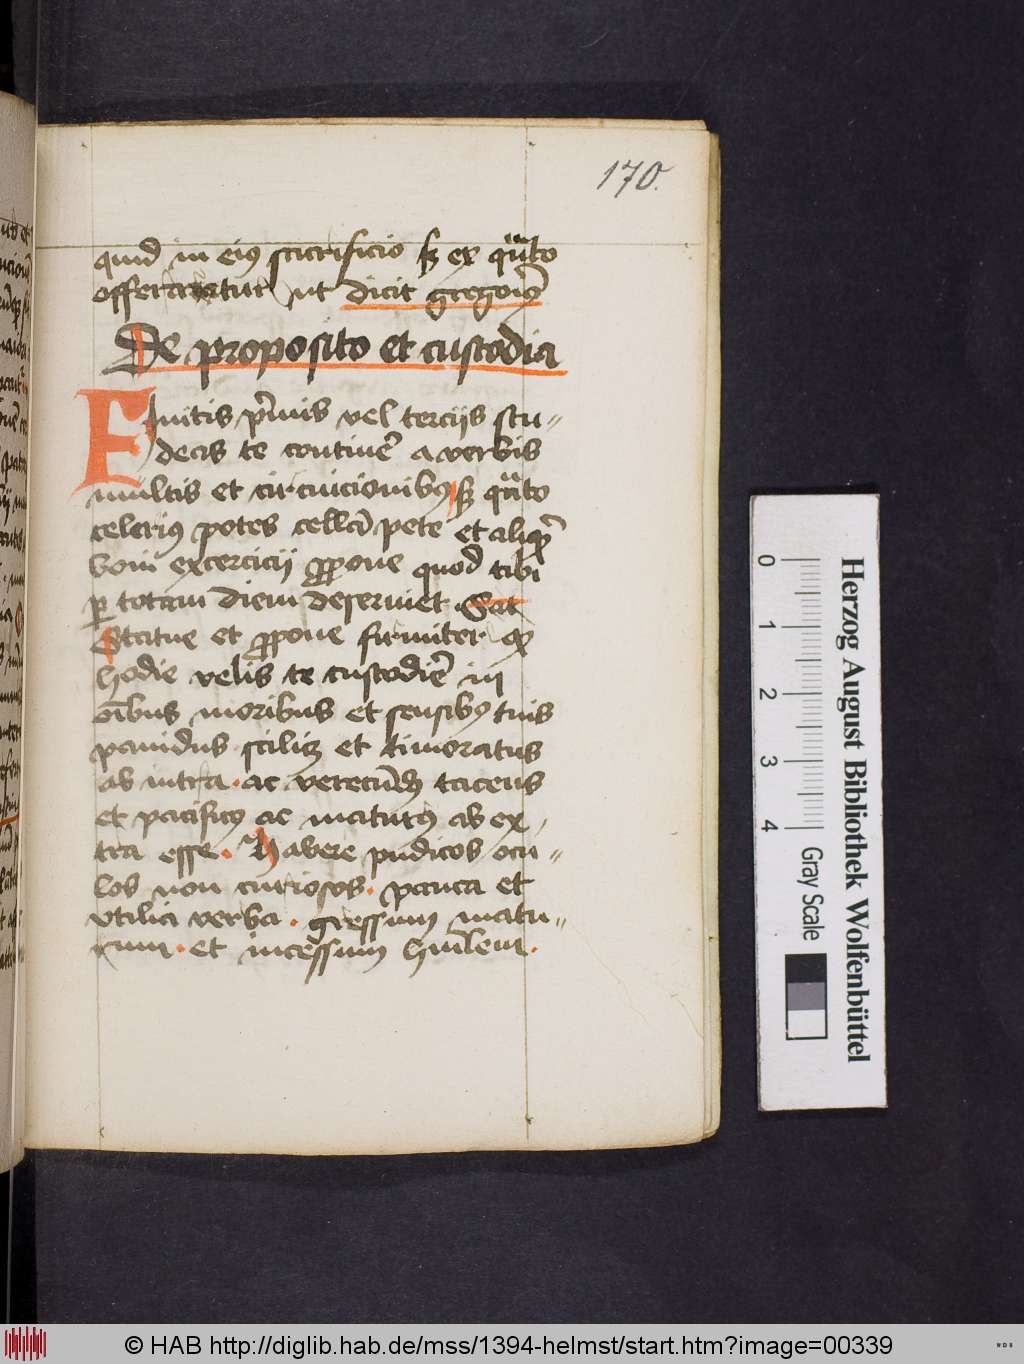 170.
quid in eiꝰ sacrificio sꝫ ex qua̅to
offerretur ut dicit gregoriꝰ
De proposito et custodia
Finitis p̅mis vel terciis stu⸗
deas te contine̅ a verbis
multis et circuicionibꝰ sꝫ qua̅to
celeriꝰ potes cella̅ pete et aliqd̅
boni excercicii ꝓpone quod tibi
ꝑ totam diem deseruiet Sat
Statue et ꝓpone firmiter ꝙ
hodie velis te custodie̅ in
o̅ibus moribus et sensibꝰ tuis
pauidus scilicꝫ et timoratus
ab intra. ac verecu̅dꝰ tacens
et pacificꝰ ac maturꝰ ab ex
tra esse. Habere pudicos ocu⸗
los non curiosos. pauca et
vtilia verba. gressum matu⸗
rum. et incessum hu̅ilem.
Herzog August Bibliothek Wolfenbüttel
0 1 2 3 4
Gray Scale
© HAB http://diglib.hab.de/mss/1394-helmst/start.htm?image=00339